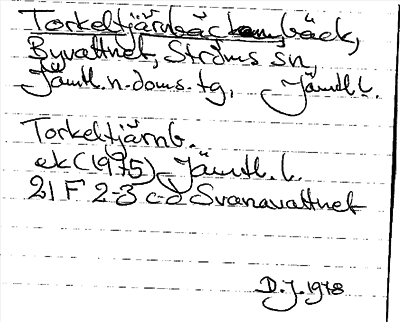 Torkeltjärnbäcken, bäck,
Byvattnet, Ströms sn,
Jämtl. n. doms. tg, Jämtl. l.
Torkeltjärnb.
ek (1975) Jämtl. l.
21 F 2-3 c-d Svanavattnet
D.J. 1978